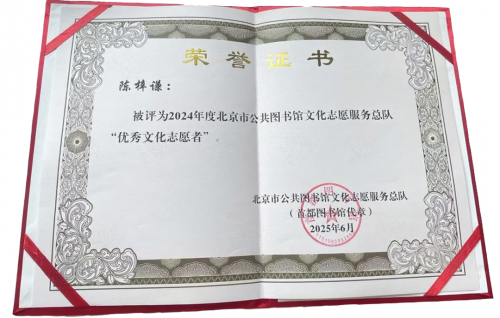 荣誉证书
陈梓谦：
被评为2024年度北京市公共图书馆文化志愿服务总队
“优秀文化志愿者”。
北京市公共图书馆文化志愿服务总队
（首都图书馆代章）
2025年6月